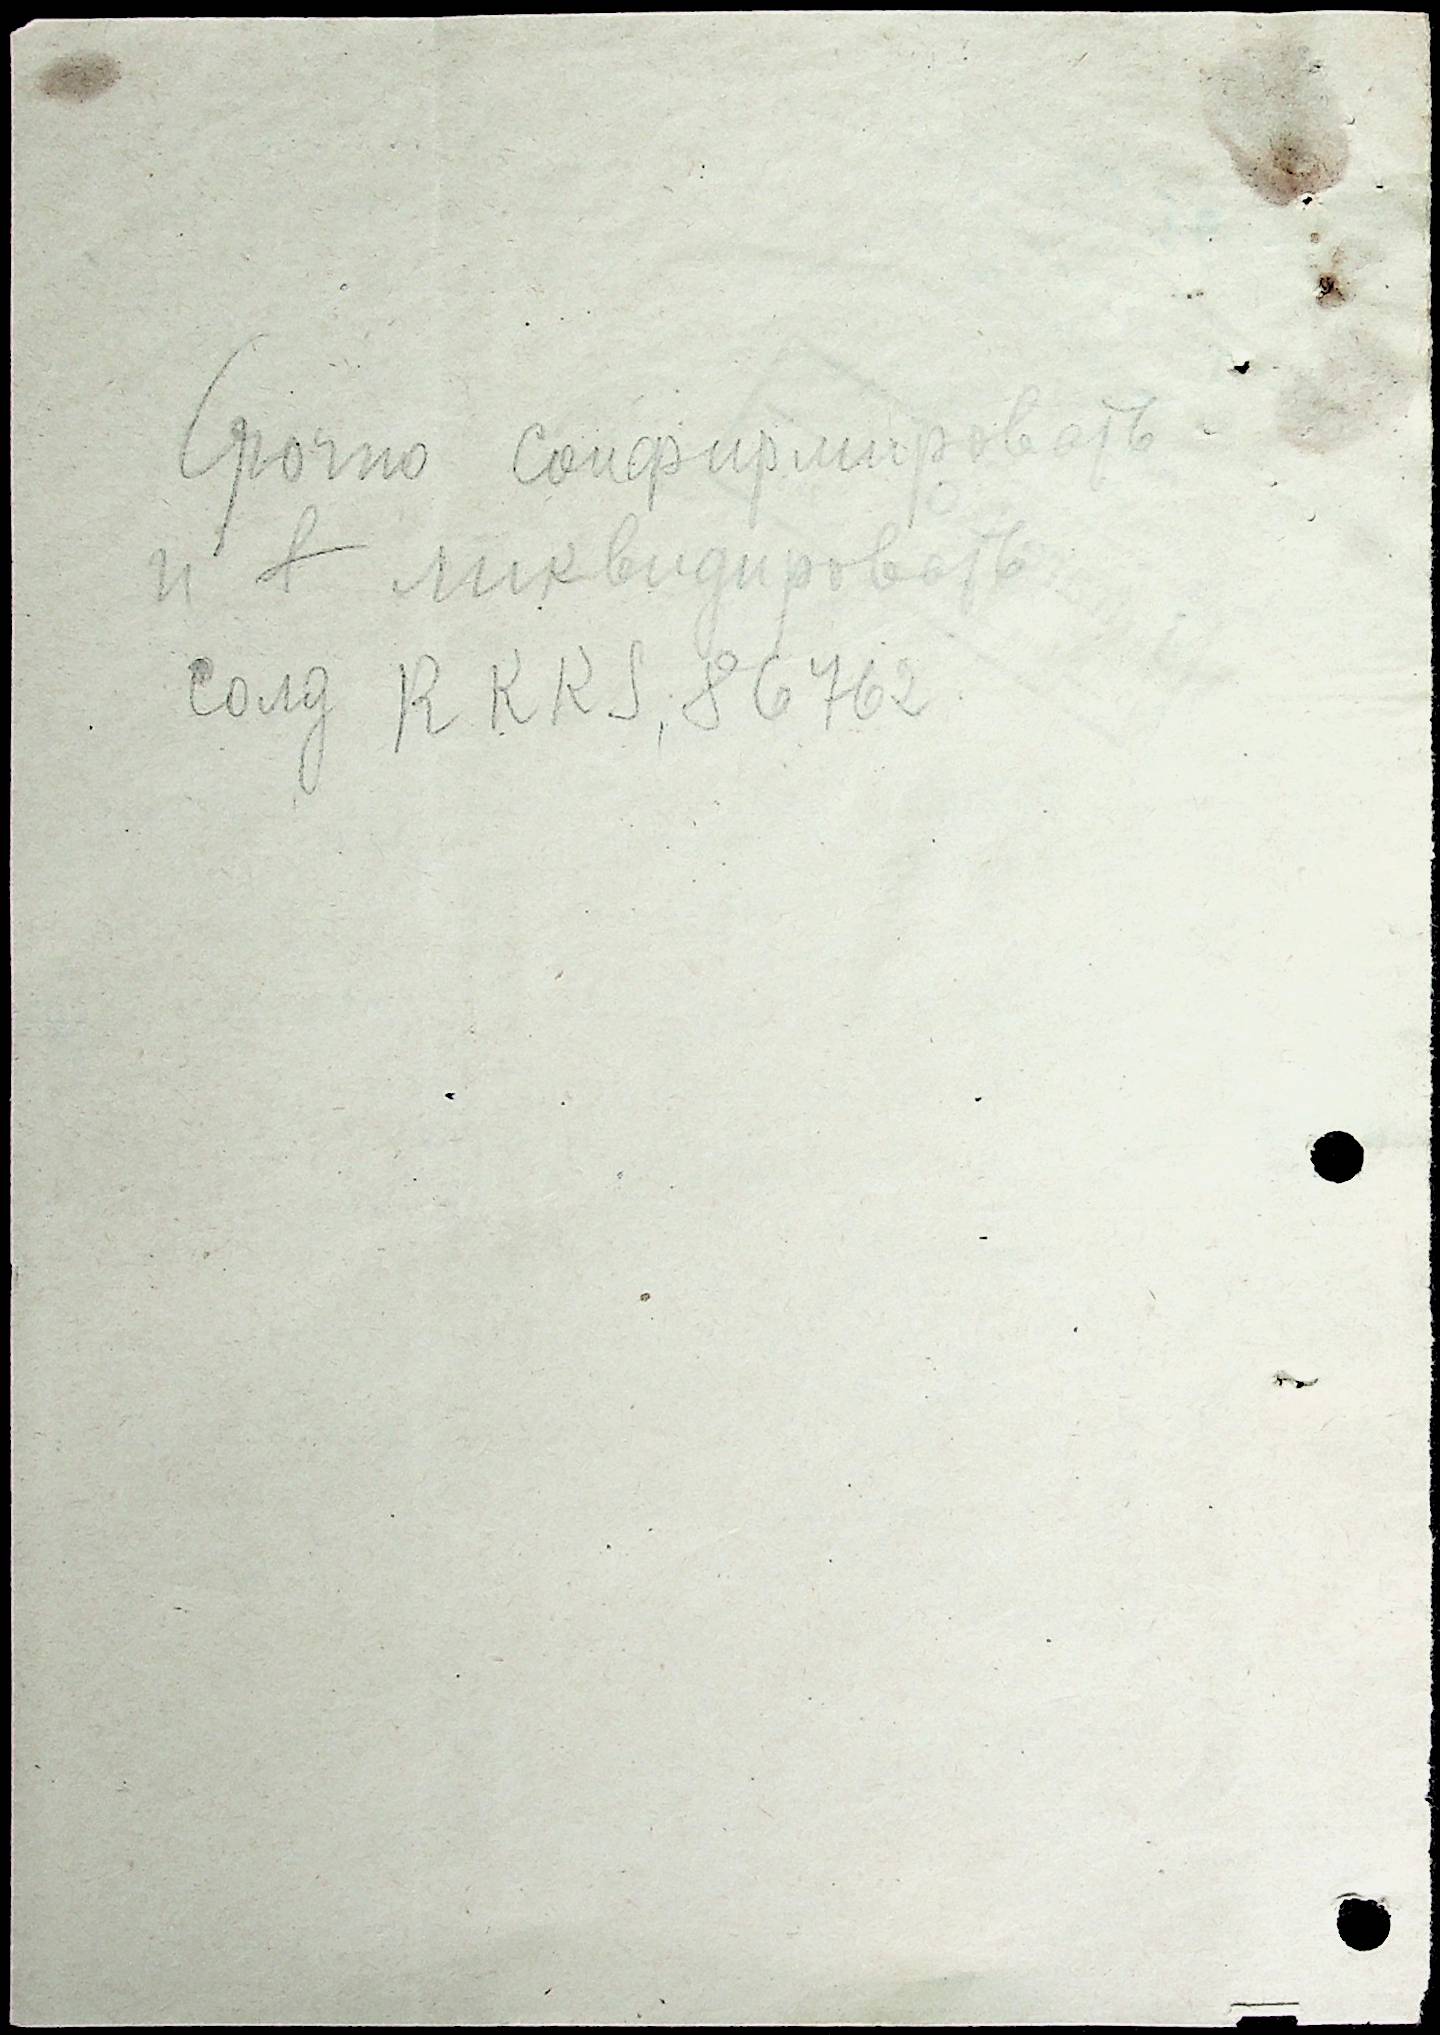 Срочно сонфирмировать
и ликвидировать
солд RKKS, 86762